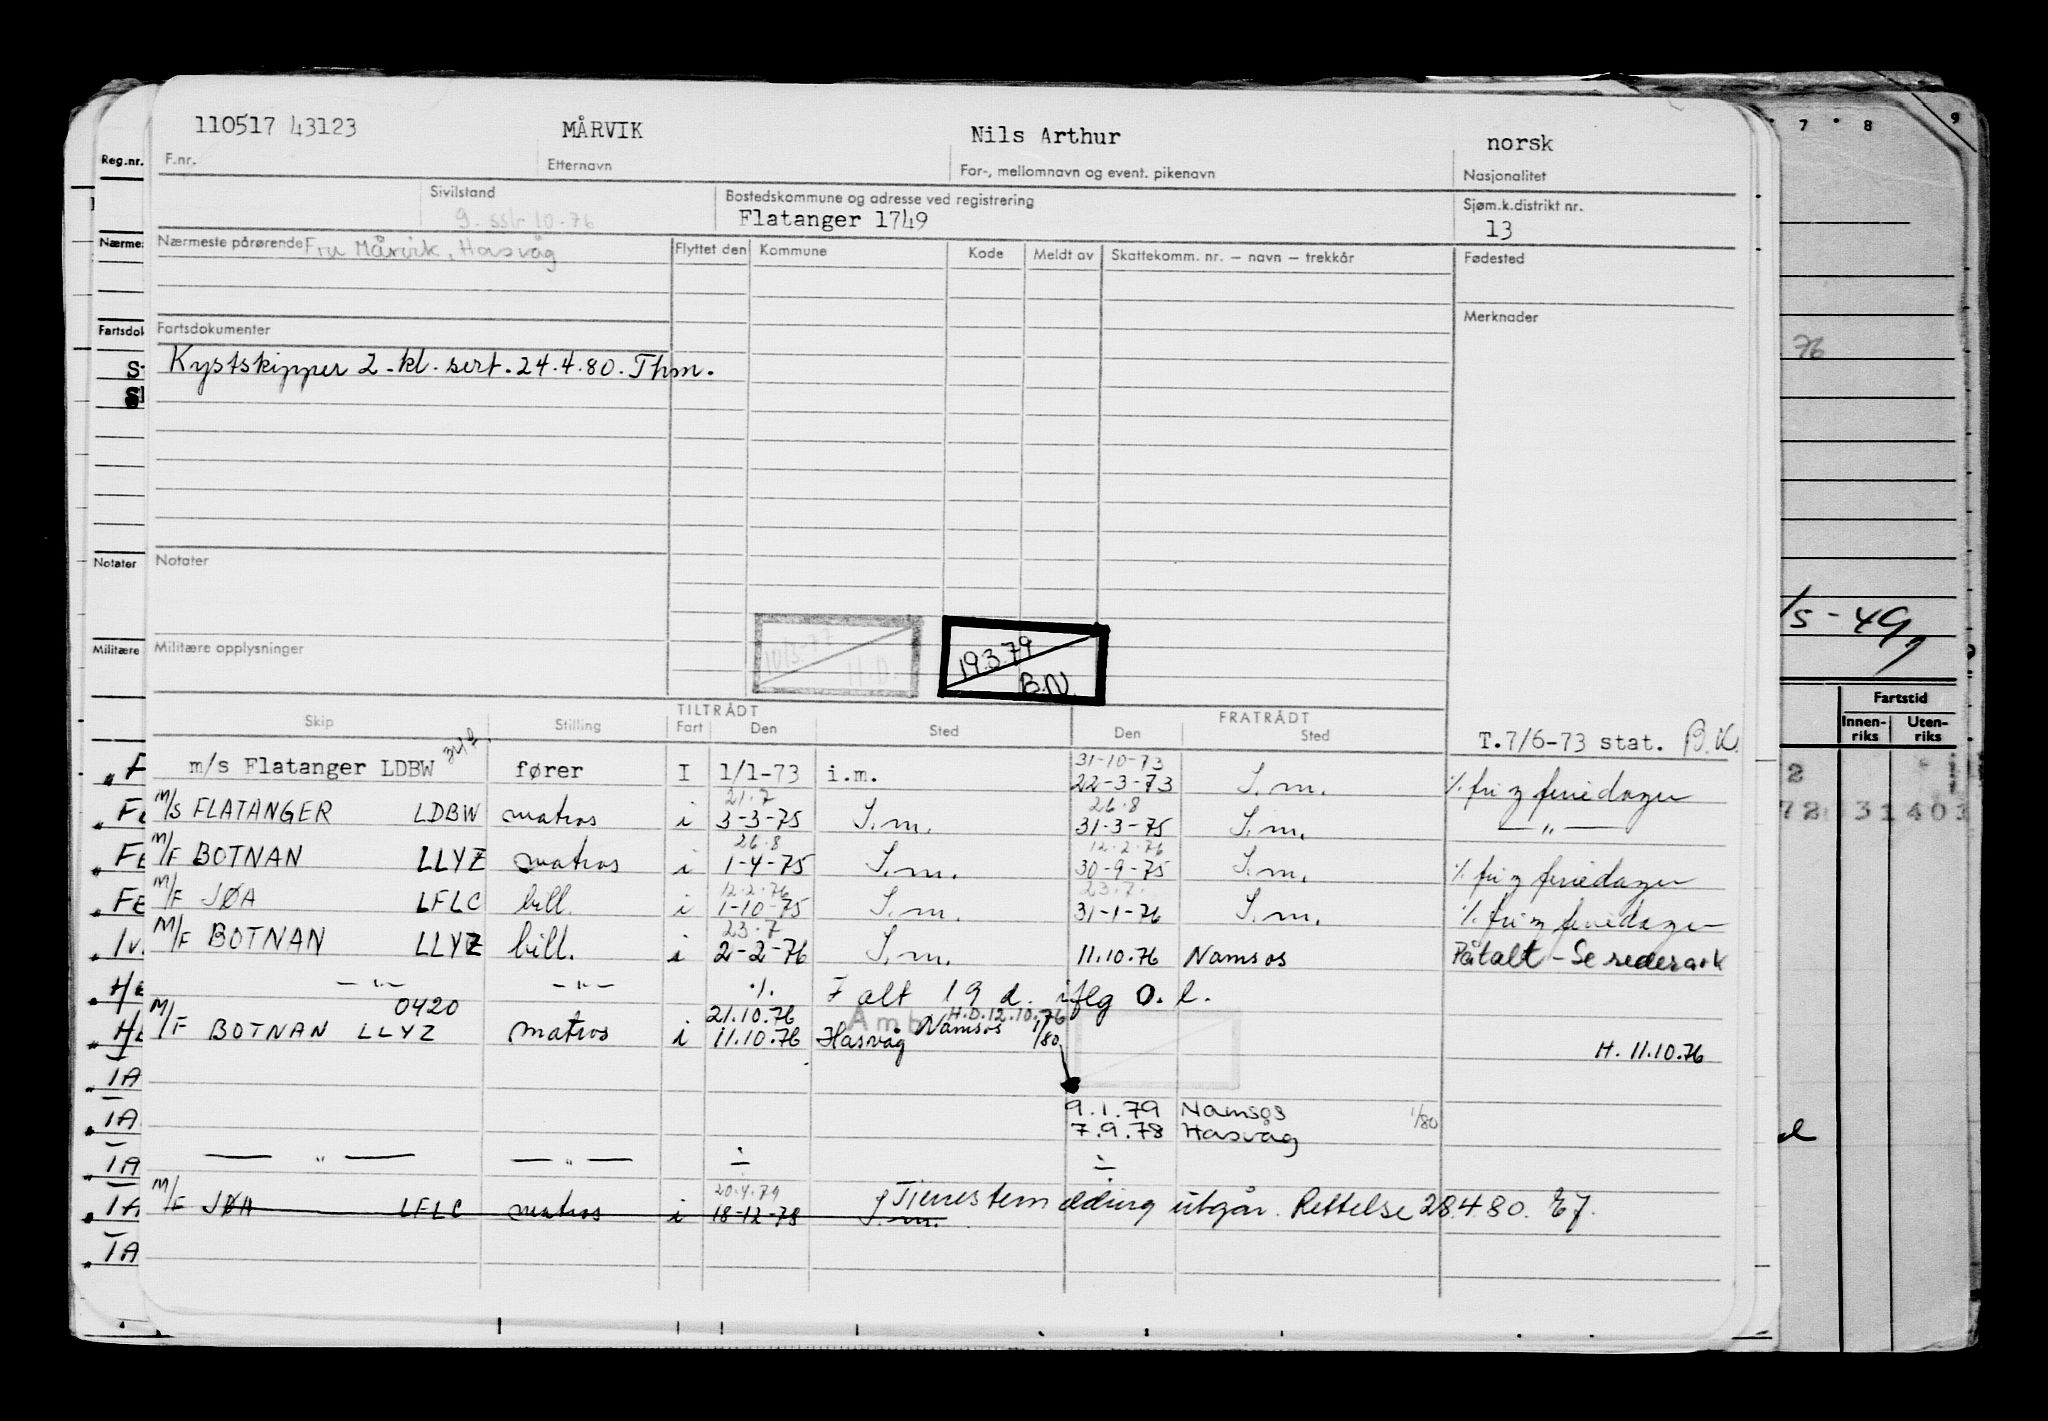 110517 43123 MÅRVIK Nils Arthur norsk
Reg.nr. F.nr. Etternavn For-, mellomnavn og event. pikenavn Nasjonalitet
Sivilstand Bostedskommune og adresse ved registrering Sjøm.k.distrikt nr.
g. sslr 10-76 Flatanger 1749 13
Nærme Nærmeste pårørende Fru Mårvik, Hasvåg Flyttet den Kommune Kode Meldt av Skattekomm. nr. – navn – trekkår Fødested
Fartsdok Fartsdokumenter Merknader
Kystskipper 2. kl. sert. 24.4.80. Thm.
76
Notater Notater
/5-49,
Militære Militære opplysninger
10/3-77 H.D.
19.3.79 B.N.
Skip Stilling TILTRÅDT Fart Den Sted FRATRÅDT Den Sted
Fartstid Innen-riks Uten-riks
T.7/6-73 stat. B.K.
31-10-73
m/s Flatanger LDBW fører I 1/1-73 i.m. 22-3-73 S.m. ./. fri g feriedager
21.7 26.8
M/S FLATANGER LDBW matros i 3-3-75 S.m. 31-3-75 S.m. — " —
26.8 12.2.76
M/F BOTNAN LLYZ matros i 1-4-75 S.m. 30-9-75 S.m. ./. fri g feriedager
12.2.76 23.7.
M/F JØA LFLC bill. i 1-10-75 S.m. 31-1-76 S.m. ./. fri g feriedager
23.7
M/F BOTNAN LLYZ bill. i 2-2-76 S.m. 11.10.76 Namsos Påtalt - Se rederark
— " — — " — ./. I alt 19 d. iflg O. l.
0420 21.10.76 H.D. 12.10.76
M/F BOTNAN LLYZ matros i 11.10.76 Hasvåg Namsos 1/80 H. 11.10.76
9.1.79 Namsos 1/80
7.9.78 Hasvåg
— " — — " — ÷ ÷
20.4.79
M/F JØA LFLC matros i 18-12-78 S.m. Tjenestemelding utgår. Rettelse 28.4.80. EJ.